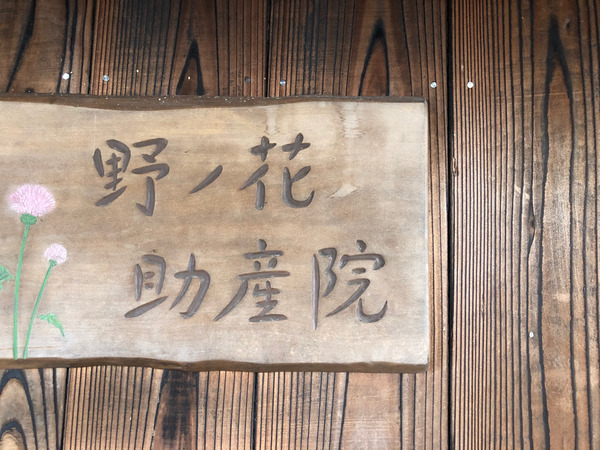 野ノ花
助産院